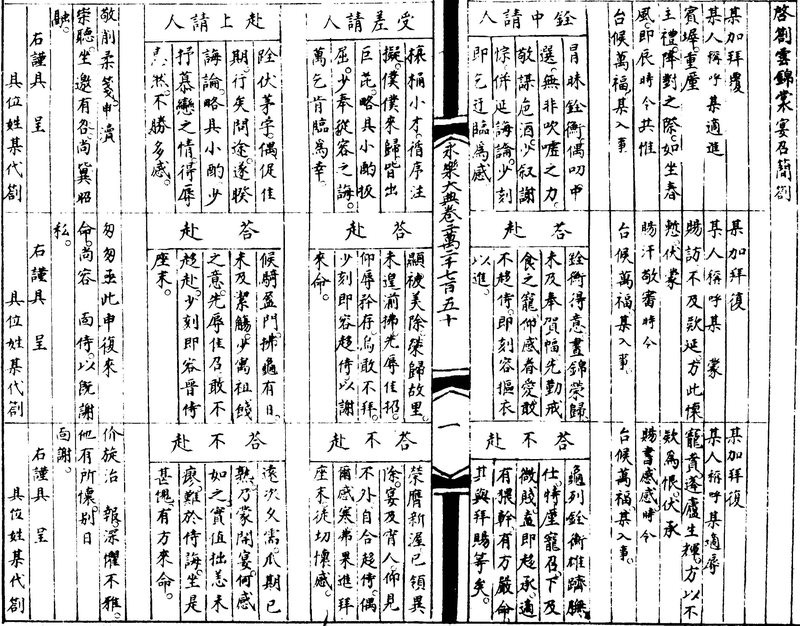 啓劄雲錦裳 宴召簡劄
某加拜覆
某人稱呼某適進
賓墀重塵
主禮降對之際如坐春
風。即辰時令共惟
台候萬福。某入事
銓中請人
冐昧銓衡偶叨中
選。無非吹噓之力。
敬謀危酒。少叙謝
悰併延誨論。少刻
即乞迂臨為感
某加拜復
某人稱呼某 蒙
賜訪不及欵延。方此懷
慙伏蒙
賜汗敬審時令
台候萬福。某入事。
答赴
銓衡得意。晝錦榮歸
未及奉賀幅先勤戒
食之寵。仰感眷愛敢
不趍侍。即刻容摳衣
以進。
某加拜復
某人稱呼某適辱
寵賁蓬廬生輝。方以不
欵為恨。伏承
賜書感感時令
台候萬福。某入事。
答不赴
龜列銓衡雄躋膴
仕。特塵寵召。下及
微賤。直即趍承。適
有猥幹有方嚴命
其興拜賜等矣。
永樂大典卷二萬二千七百五十
一
受差請人
榱桷小才。循序注
擬。僕僕來歸皆出
巨芘。略具小酌扳
屈。少奉從容之誨。
萬乞肯臨為幸
赴上請人
跧伏茅。偶促佳
期。行矣問途。遂睽
誨論略具小酌少
抒慕戀之情得辱
惠然不勝多感。
敬削柔箋。申凟
崇聽。坐邀有召。尚冀昭
融。
右謹具 呈
具位姓某代劄
答赴
顯被美除榮歸故里。
未遑前拂先辱佳招。
仰辱矜存。焉敢不拜。
少刻即容趍侍以謝
來命。
答赴
候騎盈門拂龜有日。
未及絜觴。少寓祖餞
之意。先辱佳召敢不
趍赴。少刻即容晉侍
座末。
匆匆亟此申復來
命。尚容 面侍。以既謝
私。
右謹具 呈
具位姓某代劄
答不赴
榮膺新渥已領異
除。宴及人仰見
不外自合趍侍。偶
爾感寒弗果進拜
座末徒切懷感。
答不赴
遠次久需。瓜期已
熟。乃蒙開宴。何感
如之實值拙恙未
瘳。難於侍誨。坐是
甚愧。有方來命。
价旋治 報深懼不雅。
他有所懷。别日
面謝。
右謹具 呈
具位姓某代劄